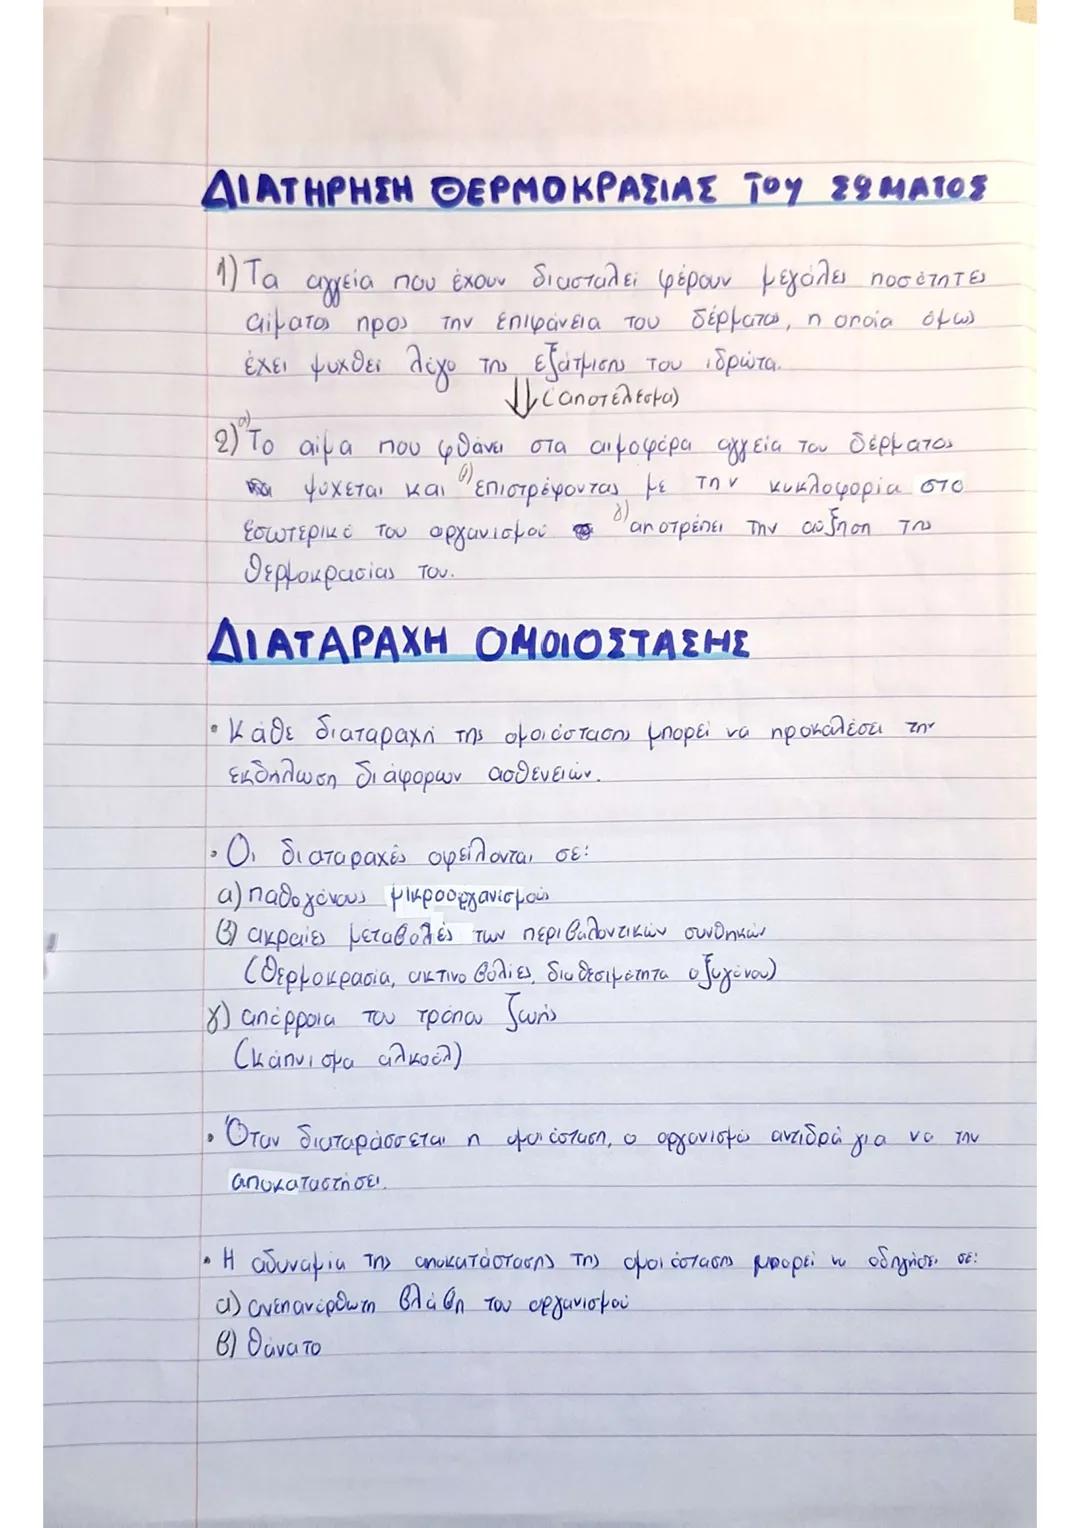 ΔΙΑΤΗΡΗΣΗ ΘΕΡΜΟΚΡΑΣΙΑΣ ΤΟΥ ΣΩΜΑΤΟΣ
1) Τα αγγεία που έχουν διασταλεί φέρουν μεγάλες ποσότητες
αίματος προς την επιφάνεια του δέρματος, η οποία όμως
έχει ψυχθεί λόγο της εξάτμισης του ιδρώτα.
⇓ (αποτέλεσμα)
2) α) Το αίμα που φθάνει στα αιμοφόρα αγγεία του δέρματος
ψύχεται και β) επιστρέφοντας με την κυκλοφορία στο
εσωτερικό του οργανισμού γ) αποτρέπει την αύξηση της
θερμοκρασίας του.
ΔΙΑΤΑΡΑΧΗ ΟΜΟΙΟΣΤΑΣΗΣ
• Κάθε διαταραχή της ομοιόστασης μπορεί να προκαλέσει την
εκδήλωση διάφορων ασθενειών.
• Οι διαταραχές οφείλονται σε:
α) παθογόνους μικροοργανισμούς
β) ακραίες μεταβολές των περιβαλοντικών συνθηκών
(θερμοκρασία, ακτινοβολίες, διαθεσιμότητα οξυγόνου)
γ) απόρροια του τρόπου ζωής
(κάπνισμα αλκοόλ)
• Όταν διαταράσσεται η ομοιόσταση, ο οργανισμός αντιδρά για να την
αποκαταστήσει.
• Η αδυναμία της αποκατάστασης της ομοιόστασης μπορεί να οδηγήσει σε:
α) ανεπανόρθωτη βλάβη του οργανισμού
β) θάνατο